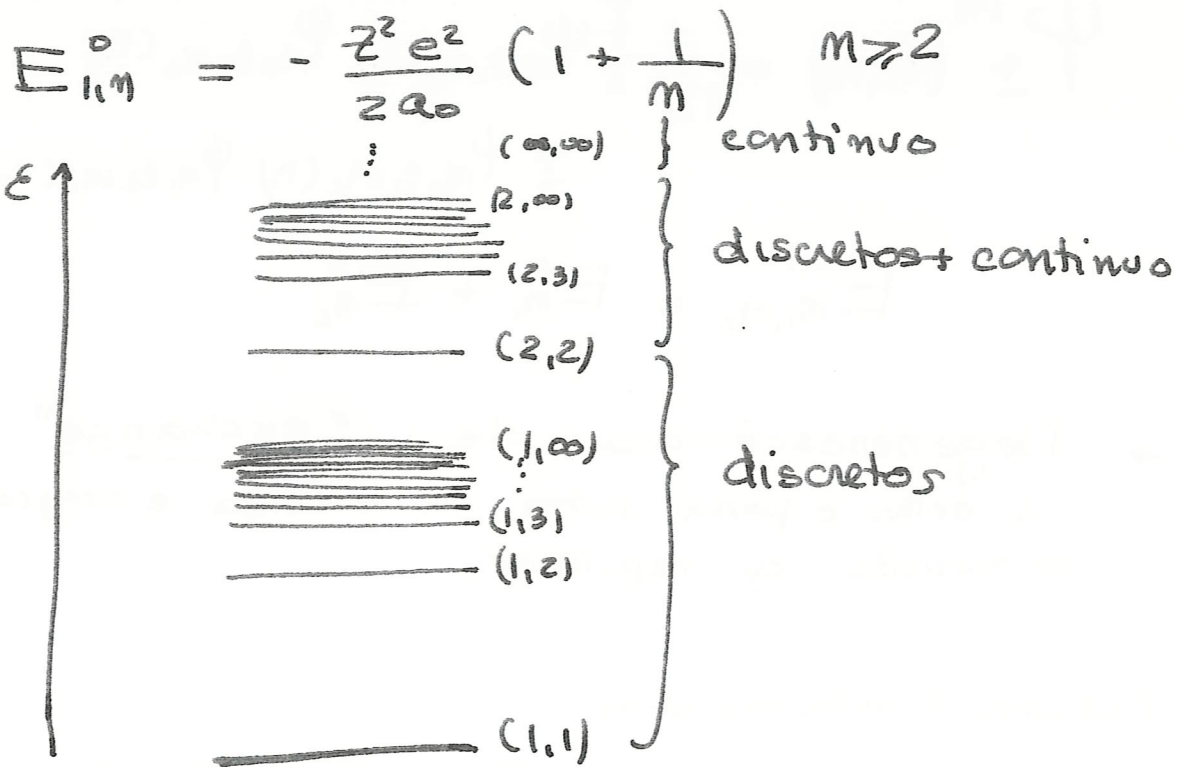 E⁰₁,ₙ = - Z² e² / 2 a₀ (1 + 1/n) n ≥ 2
⋮ (∞,∞) } continuo
ε (2,∞)
(2,3) discretos + continuo
(2,2)
(1,∞)
⋮ discretos
(1,3)
(1,2)
(1,1)